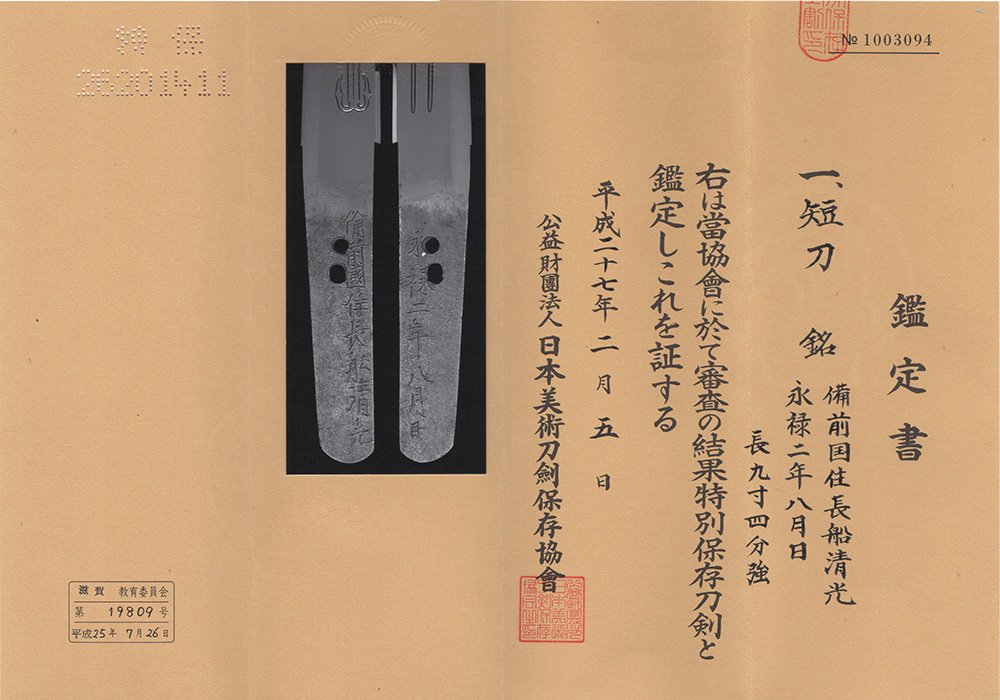 № 1003094
鑑定書
一、短刀 銘 備前国住長船清光
永禄二年八月日
長九寸四分強
右は當協會に於て審査の結果特別保存刀剣と
鑑定しこれを証する
平成二十七年二月五日
公益財團法人日本美術刀劍保存協會
永禄二年八月日
備前國住長船清光
26201411
滋賀 教育委員会
第 19809 号
平成25年 7月26日